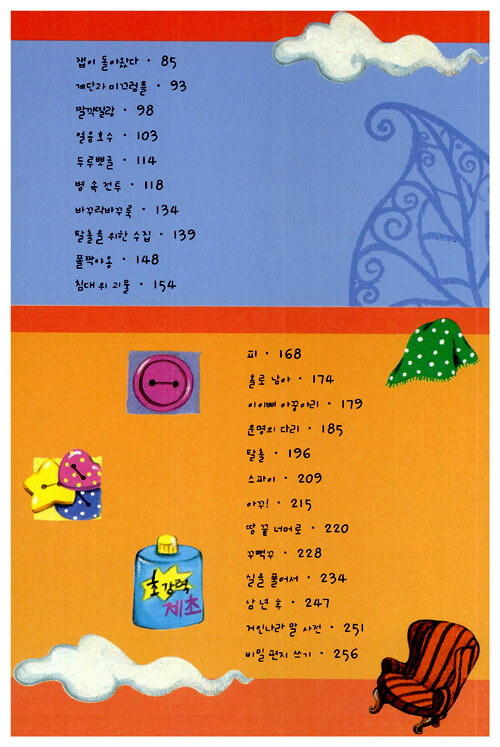 잽이 돌아왔다 · 85
계단과 미끄럼틀 · 93
딸깍딸랑 · 98
얼음호수 · 103
두루뽀글 · 114
병 속 전투 · 118
바꾸락바꾸룩 · 134
탈출을 위한 수집 · 139
폴짝야옹 · 148
침대 위 괴물 · 154
피 · 168
홀로 남아 · 174
이이삐 아꿍아리 · 179
운명의 다리 · 185
탈출 · 196
스파이 · 209
아꾸! · 215
땅 끝 너머로 · 220
꾸빽꾸 · 228
실을 풀어서 · 234
삼 년 후 · 247
거인나라 말 사전 · 251
비밀 편지 쓰기 · 256
초강력
제초